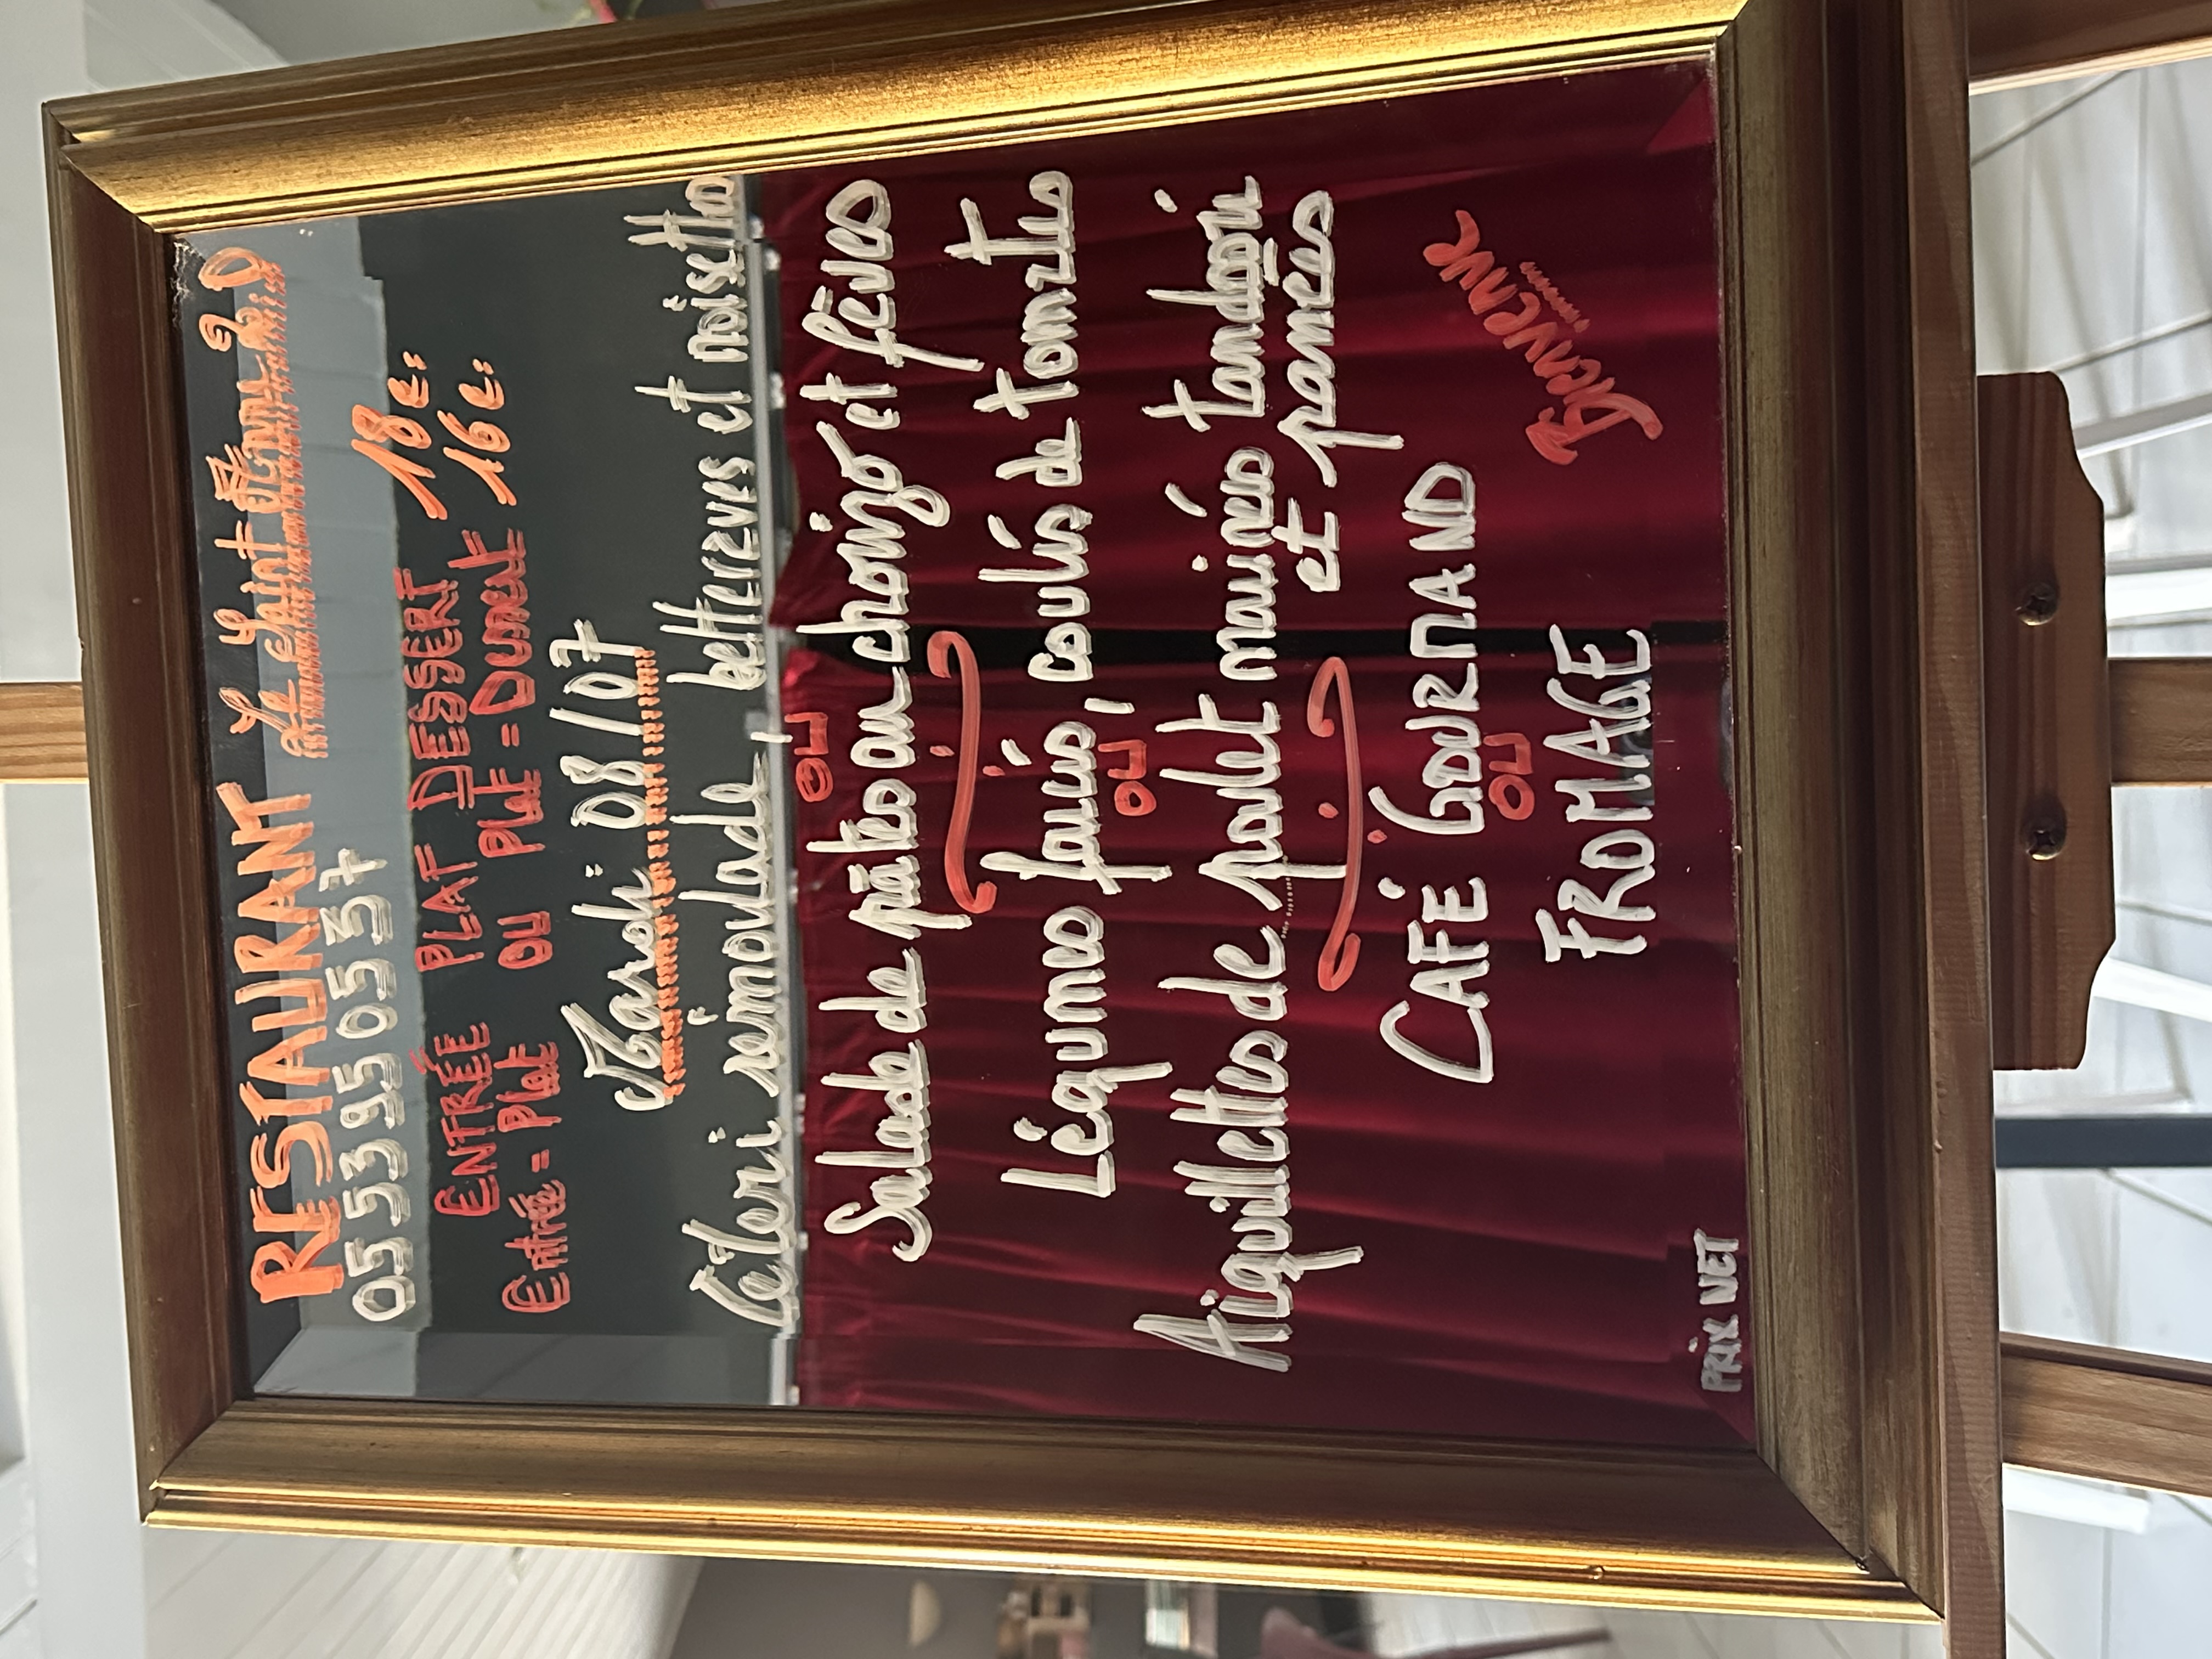 RESTAURANT Le Saint
05 53 95 05 37
ENTRÉE PLAT DESSERT 18€
Entrée - Plat ou Plat - Dessert 16€
Mardi 08/07
Céleri rémoulade, betteraves et noisettes
ou
Salade de pâtes au chorizo et fèves
Légumes farcis, coulis de tomates
ou
Aiguillettes de poulet marinées tandoori
et panées
CAFÉ GOURMAND
ou
FROMAGE
Bienvenue
PRIX NET